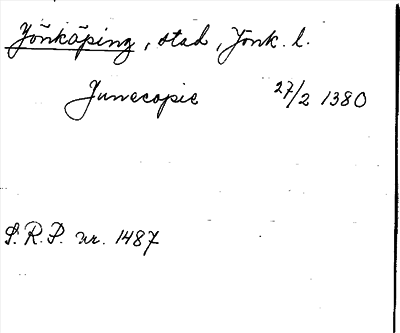 Jönköping, stad, Jönk. l.
Junecopie 27/2 1380
S.R.P. nr. 1487